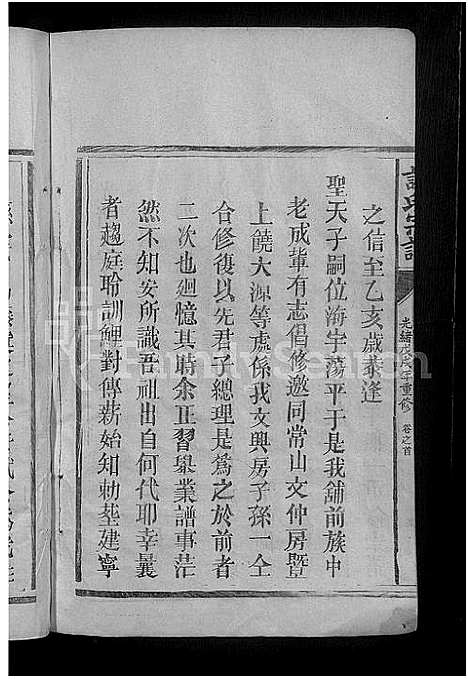 之信至乙亥歲恭逢
聖天子嗣位海宇蕩平于是我舖前族中
老成輩有志倡修邀同常山文仲房曁
上饒大源等處係我文興房子孫一仝
合修復以先君子總理是爲之於前者
二次也廻憶其時余正習舉業譜事茫
然不知安所識吾祖出自何代耶幸曩
者趨庭聆訓鯉對傳薪始知勅塟建寧
光緒戊戌年重修 卷之首
FamilySearch